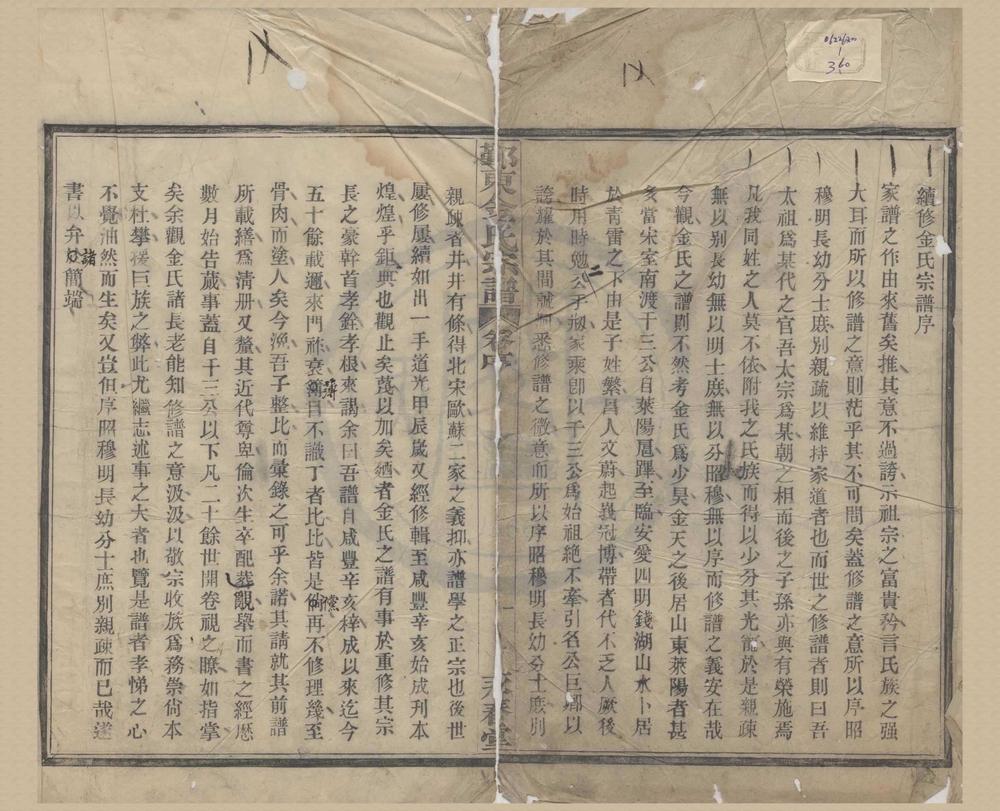 續修金氏宗譜序
家譜之作由來舊矣推其意不過誇示祖宗之富貴矜言氏族之强
大耳而所以修譜之意則茫乎其不可問矣蓋修譜之意所以序昭
穆明長幼分士庶別親疏以維持家道者也而世之修譜者則曰吾
太祖爲某代之官吾太宗爲某朝之相而後之子孫亦與有榮施焉
凡我同姓之人莫不依附我之氏族而得以少分其光寵於是親疎
無以別長幼無以明士庶無以分昭穆無以序而修譜之義安在哉
今觀金氏之譜則不然考金氏爲少昊金天之後居山東萊陽者甚
多當宋室南渡干三公自萊陽扈蹕至臨安愛四明錢湖山水卜居
於青雷之下由是子姓繁昌人文蔚起峩冠博帶者代不乏人厥後
時用時勉二公于初家乘卽以干三公爲始祖絶不牽引名公巨卿以
誇耀於其間誠洞悉修譜之微意而所以序昭穆明長幼分士庶別
鄞東金氏宗譜 卷 序 一 春堂
親疎者井井有條得北宋歐蘇二家之義抑亦譜學之正宗也後世
屢修屢續如出一手道光甲辰歲又經修輯至咸豐辛亥始成刋本
煌煌乎鉅典也觀止矣蔑以加矣廼者金氏之譜有事於重修其宗
長之豪幹首孝銓孝根來謁余曰吾譜自咸豐辛亥梓成以來迄今
五十餘載邇來門祚衰薄目不識丁者比比皆是倘再不修理幾至
骨肉而塗人矣今漁吾子整比而彙錄之可乎余諾其請就其前譜
所載繕爲清册又釐其近代尊卑倫次生卒配葬覶舉而書之經歷
數月始告蕆事蓋自干三公以下凡二十餘世開卷視之瞭如指掌
矣余觀金氏諸長老能知修譜之意汲汲以敬宗收族爲務崇尙本
支杜攀援巨族之弊此尤繼志述事之大者也覽是譜者孝悌之心
不覺油然而生矣又豈但序昭穆明長幼分士庶別親疎而已哉遂
書以弁諸簡端